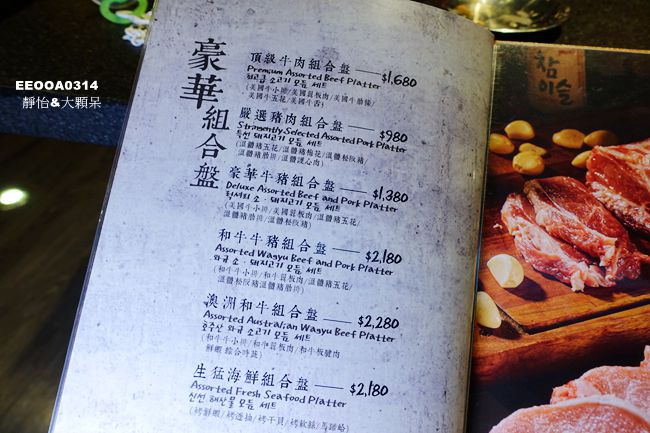 EEOOA0314
靜怡&大顆呆
豪華組合盤
頂級牛肉組合盤 $1,680
Premium Assorted Beef Platter
최고급 소고기 모듬 세트
(美國牛小排/美國翼板肉/美國牛肋條/
美國牛五花/美國牛舌)
嚴選豬肉組合盤 $980
Stringently Selected Assorted Pork Platter
특선 돼지고기 모듬 세트
(溫體豬五花/溫體豬梅花/溫體松阪豬/
溫體豬肋排/溫體護心肉)
豪華牛豬組合盤 $1,380
Deluxe Assorted Beef and Pork Platter
럭셔리 소·돼지고기 모듬 세트
(美國牛小排/美國翼板肉/溫體豬五花/
溫體豬肋排/溫體松阪豬)
和牛牛豬組合盤 $2,180
Assorted Wagyu Beef and Pork Platter
와규 소·돼지고기 모듬 세트
(和牛牛小排/和牛翼板肉/溫體豬五花/
溫體松阪豬溫體豬肋排)
澳洲和牛組合盤 $2,280
Assorted Australian Wagyu Beef Platter
호주산 와규 소고기 모듬 세트
(和牛牛小排/和牛翼板肉/和牛板腱肉
鮮蝦 綜合時蔬)
生猛海鮮組合盤 $2,180
Assorted Fresh Seafood Platter
신선 해산물 모듬 세트
(烤鮮蝦/烤透抽/烤干貝/烤軟絲/馬蹄蛤)
참이슬